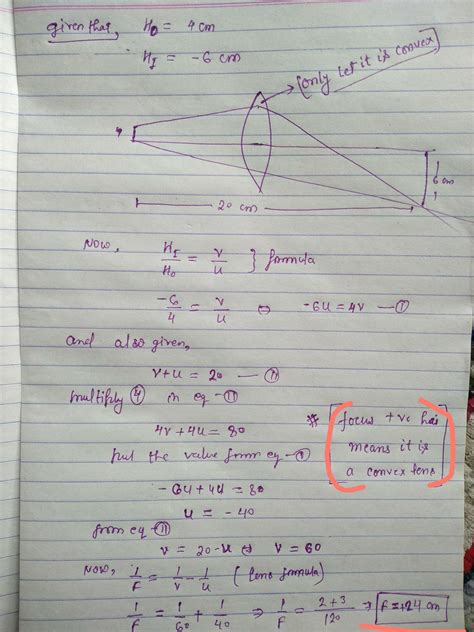 given that, H₀ = 4 cm
H_I = -6 cm
[only let it is convex]
4
6 cm
20 cm
Now, H_I/H₀ = v/u } formula
-6/4 = v/u ⇔ -6u = 4v — ①
And also given,
v+u = 20 — ⑪
multiply ④ in eq - ⑪
4v + 4u = 80
put the value from eq - ①
-6u + 4u = 80
u = -40
from eq - ⑪
v = 20-u ⇔ v = 60
** [focus +ve has
means it is
a convex lens]
Now, 1/F = 1/v - 1/u (lens formula)
1/F = 1/60 + 1/40 ⇒ 1/F = 2+3/120 ⇒ F = +24 cm